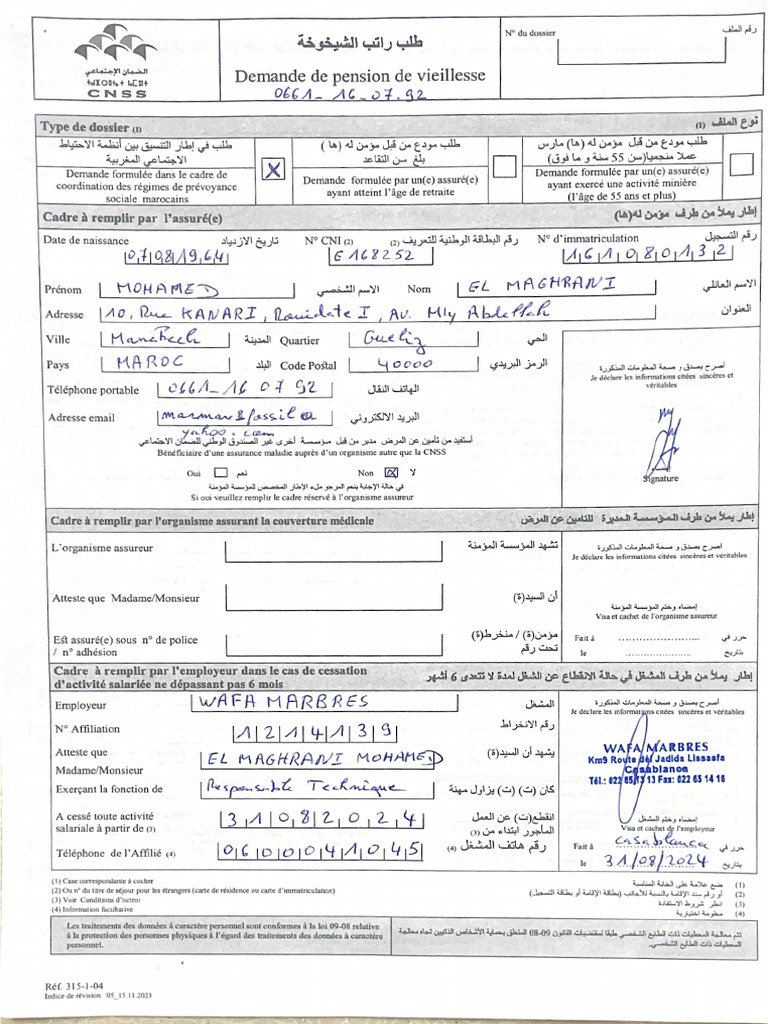 الضمان الإجتماعي
CNSS
طلب راتب الشيخوخة
Demande de pension de vieillesse
0661-16.07.92
N° du dossier
رقم الملف
Type de dossier (1)
نوع الملف (1)
طلب في إطار التنسيق بين أنظمة الاحتياط الاجتماعي المغربية
Demande formulée dans le cadre de coordination des régimes de prévoyance sociale marocains
X
طلب مودع من قبل مؤمن له (ها) بلغ سن التقاعد
Demande formulée par un(e) assuré(e) ayant atteint l'âge de retraite
طلب مودع من قبل مؤمن له (ها) مارس عملا منجميا(سن 55 سنة و ما فوق)
Demande formulée par un(e) assuré(e) ayant exercé une activité minière (l'âge de 55 ans et plus)
Cadre à remplir par l'assuré(e)
إطار يملأ من طرف مؤمن له(ها)
Date de naissance
تاريخ الازدياد
N° CNI (2)
رقم البطاقة الوطنية للتعريف (2)
N° d'immatriculation
رقم التسجيل
07081964
E168252
161080132
Prénom MOHAMED الاسم الشخصي
Nom EL MAGHRANI الاسم العائلي
Adresse 10, Rue KANARI, Rouidate I, Av. Mly Abdellah العنوان
Ville Marrakech المدينة
Quartier Gueliz الحي
Pays MAROC البلد
Code Postal 40000 الرمز البريدي
Téléphone portable 0661-16 07 92 الهاتف النقال
Adresse email البريد الالكتروني
yahoo.com
أستفيد من تأمين عن المرض مدبر من قبل مؤسسة أخرى غير الصندوق الوطني للضمان الاجتماعي
Bénéficiaire d'une assurance maladie auprès d'un organisme autre que la CNSS
Oui نعم Non X لا
في حالة الإجابة بنعم المرجو ملء الإطار المخصص للمؤسسة المؤمنة
Si oui veuillez remplir le cadre réservé à l'organisme assureur
أصرح بصدق و صحة المعلومات المذكورة
Je déclare les informations citées sincères et véritables
Signature
Cadre à remplir par l'organisme assurant la couverture médicale
إطار يملأ من طرف المؤسسة المديرة للتامين عن المرض
L'organisme assureur تشهد المؤسسة المؤمنة
Atteste que Madame/Monsieur أن السيد(ة)
Est assuré(e) sous n° de police / n° adhésion
مؤمن(ة) / منخرط(ة) تحت رقم
اصرح بصدق و صحة المعلومات المذكورة
Je déclare les informations citées sincères et véritables
إمضاء وختم المؤسسة المؤمنة
Visa et cachet de l'organisme assureur
Fait à .................... حرر في
le .................... بتاريخ
Cadre à remplir par l'employeur dans le cas de cessation d'activité salariée ne dépassant pas 6 mois
إطار يملأ من طرف المشغل في حالة الانقطاع عن الشغل لمدة لا تتعدى 6 أشهر
Employeur WAFA MARBRES المشغل
N° Affiliation 1214139 رقم الانخراط
Atteste que Madame/Monsieur EL MAGHRANI MOHAMED يشهد أن السيد(ة)
Exerçant la fonction de Responsable Technique كان (ت) يزاول مهنة
A cessé toute activité salariale à partir de (3) 31082024 انقطع(ت) عن العمل المأجور ابتداء من (3)
Téléphone de l'Affilié (4) 0600041045 رقم هاتف المشغل (4)
أصرح بصدق و صحة المعلومات المذكورة
Je déclare les informations citées sincères et véritables
WAFA MARBRES
Km9 Route del Jadida Lissasfa
Casablance
Tél.: 022 65 13 13 Fax: 022 65 14 16
إمضاء وختم المشغل
Visa et cachet de l'employeur
Fait à casablanca حرر في
le 31/08/2024 بتاريخ
(1) Case correspondante à cocher
(2) Ou n° du titre de séjour pour les étrangers (carte de résidence ou carte d'immatriculation)
(3) Voir Conditions d'octroi
(4) Information facultative
(1) ضع علامة على الخانة المناسبة
(2) أو رقم سند الإقامة بالنسبة للأجانب (بطاقة الإقامة أو بطاقة التسجيل)
(3) انظر شروط الاستفادة
(4) معلومة اختيارية
Les traitements des données à caractère personnel sont conformes à la loi 09-08 relative à la protection des personnes physiques à l'égard des traitements des données à caractère personnel.
تتم معالجة المعطيات ذات الطابع الشخصي طبقا لمقتضيات القانون 09-08 المتعلق بحماية الأشخاص الذاتيين تجاه معالجة المعطيات ذات الطابع الشخصي.
Réf. 315-1-04
Indice de révision 05_15.11.2023